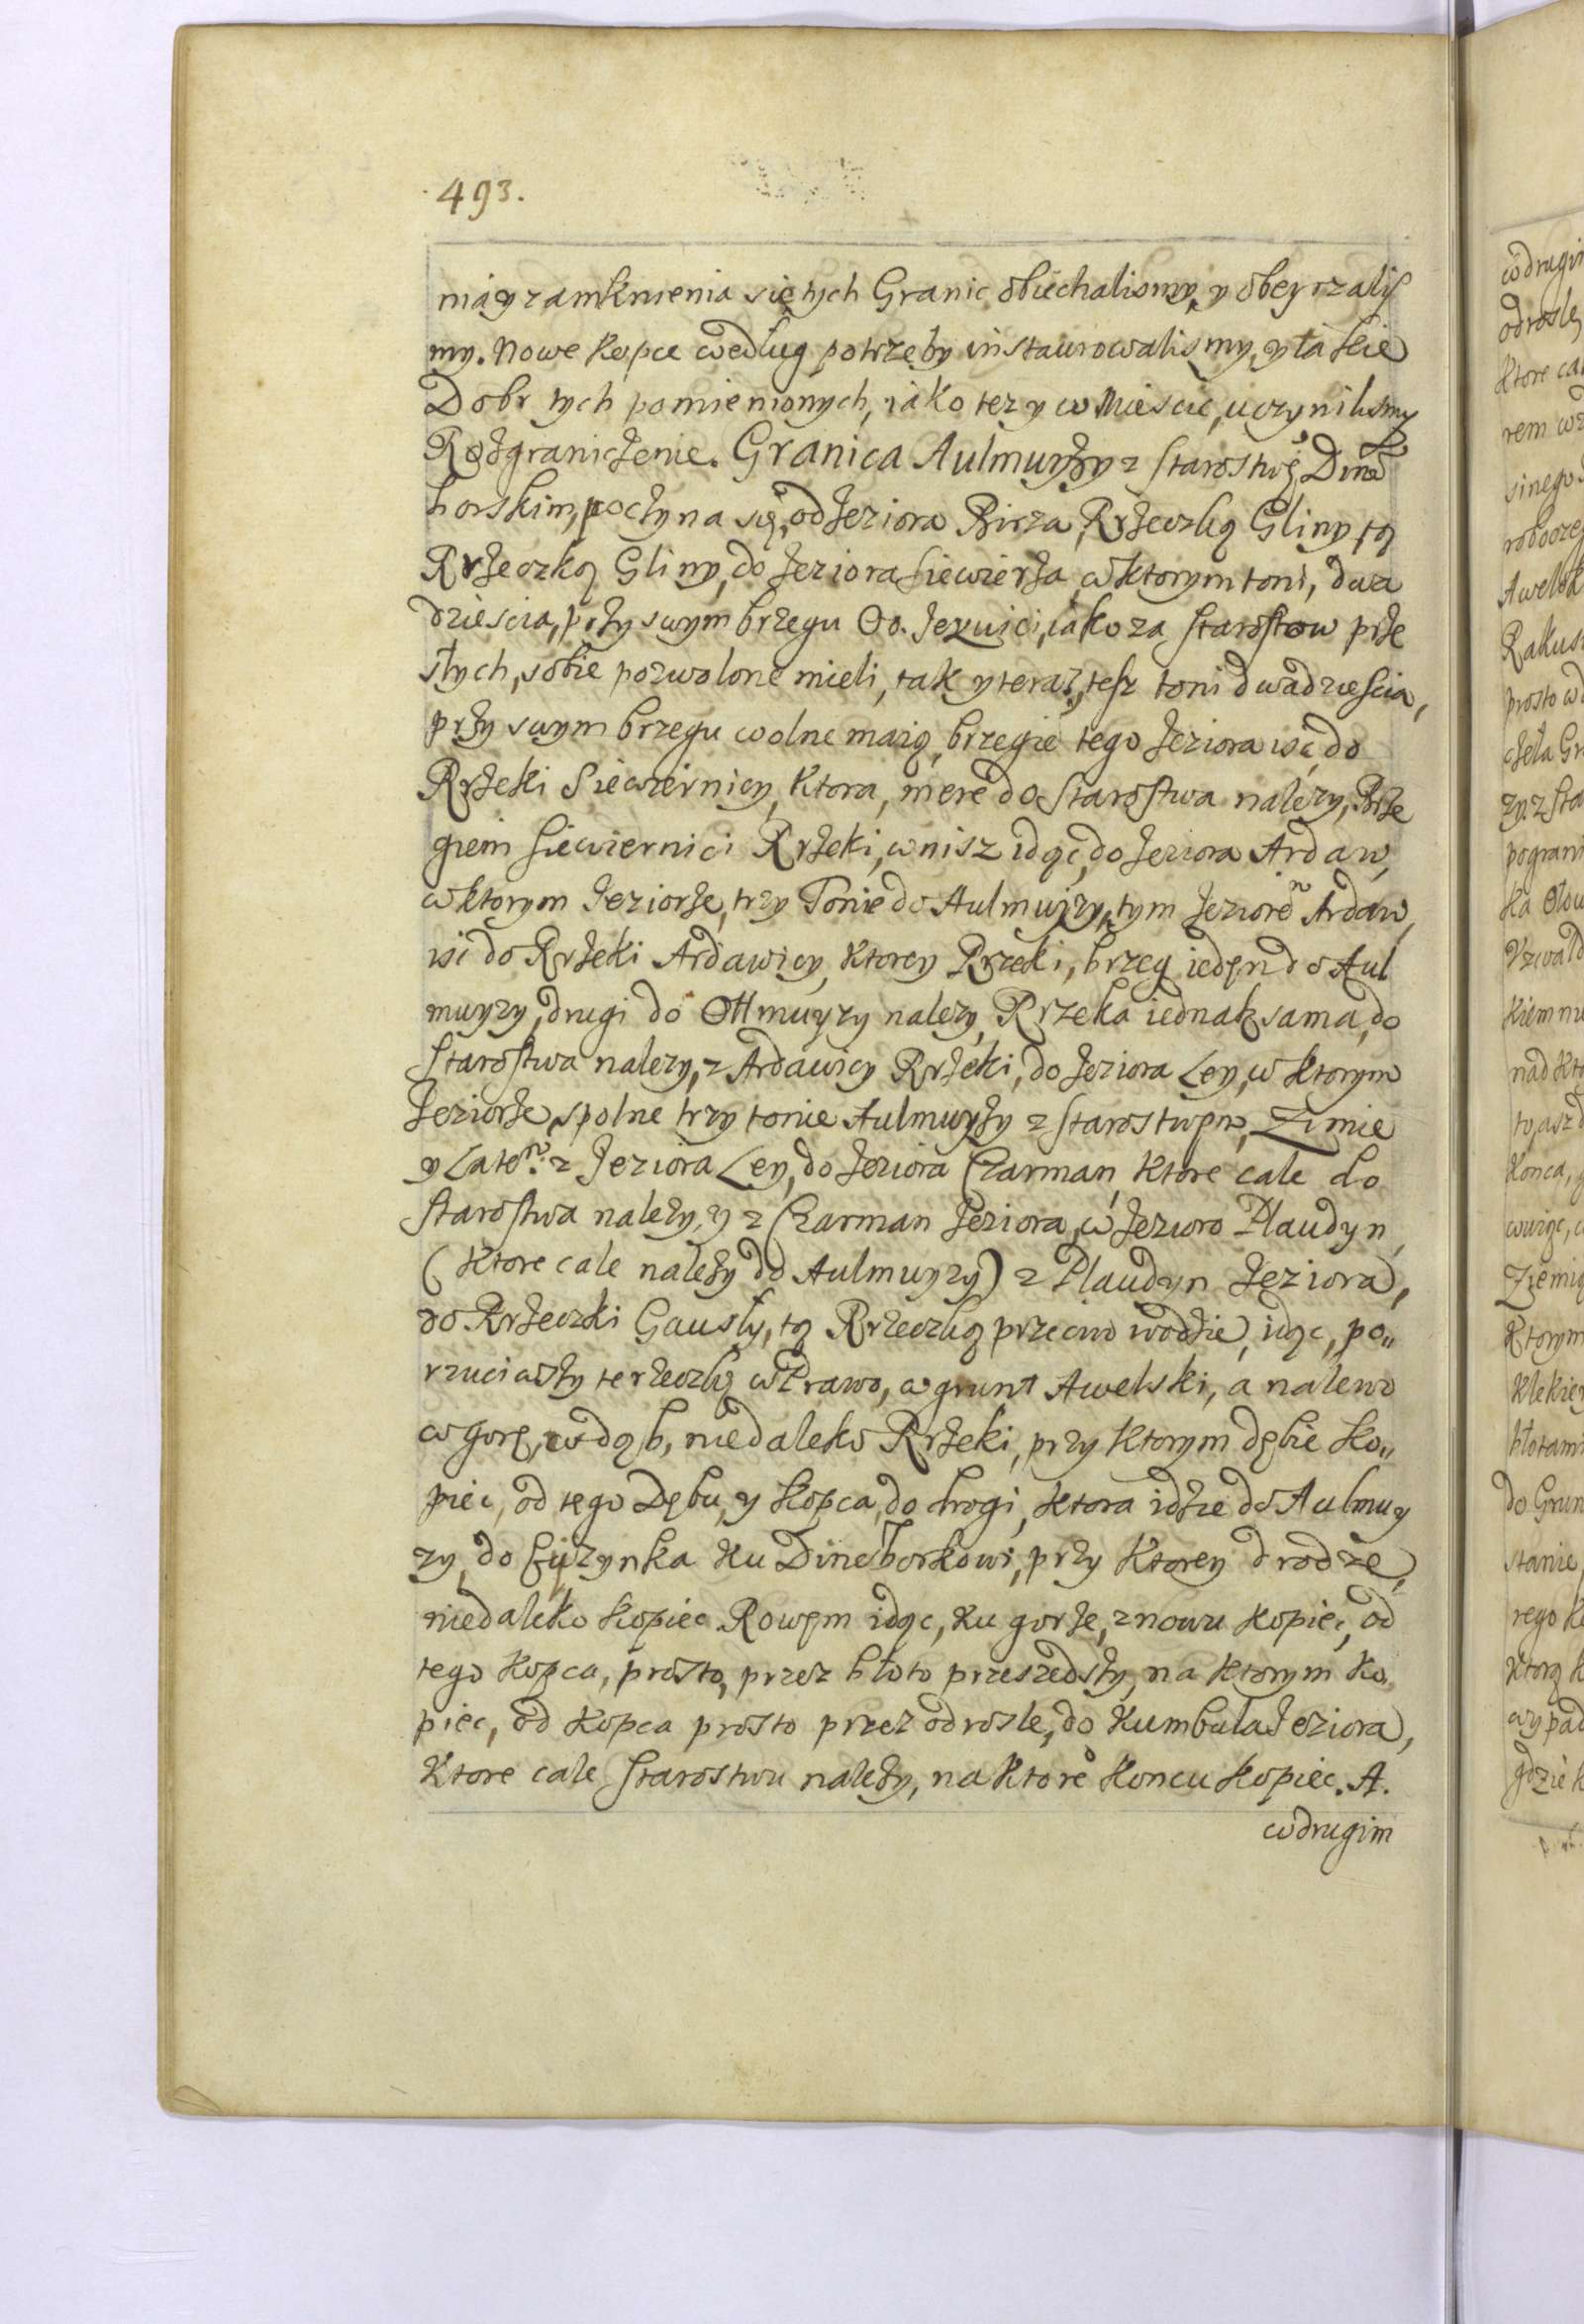 493.
nia y zamknienia się tych Granic obiechalismy, y obeyrzalis
my. Nowe kopce według potrzeby instaurowalismy, y takie
Dobr tych pomienionych, iako tez y w Miescie, uczynilismy
Rożgraniczenie. Granica Aulmuyży z Starostwē Dine
borskim, poczyna się, od Jeziora Birża, Rrżeczką Gliny, tą
Rrżeczką Gliny, do Jeziora Siewierża, w ktorym toni, dwa
dziescia, przy swym brzegu Oo. Jezuici, iako za Starostow prże
słych, sobie pozwolone mieli, tak y teraz, tesz toni dwadziescia,
przy swym brzegu wolne maią, brzegiē tego Jeziora isc do
Rrżeki Siewiernicy, ktora, mere do Starostwa nalezy, Brże
giem Siewiernici Rrżeki, w nisz idąc, do Jeziora Ardaw,
w ktorym Jeziorże, trzy Tonie do Aulmuyzy, tym Jeziorē Ardaw,
isc do Rrżeki Ardawicy, ktorey Rrzeki, brzeg ieden do Aul
muyzy, drugi do Ottmuyzy nalezy, Rrzeka iednak sama, do
Starostwa nalezy, z Ardawicy Rrżeki, do Jeziora Ley, w ktorym
Jeziorże, spolne trzy tonie Aulmuyży z Starostwem, Zimie
y Latem. z Jeziora Ley, do Jeziora Czarman, ktore cale do
Starostwa należy, y z Czarman Jeziora, w Jezioro Plaudyn,
(ktore cale należy do Aulmuyzy) z Plaudyn Jeziora,
do Rrżeczki Gausły, tą Rrzeczką przeciw wodzie, idąc, po„
rzuciwszy te rzeczkę w Prawo, w grunt Awelski, a nalewo
w gorę, w dąb, niedaleko Rrżeki, przy ktorym dębie ko„
piec, od tego Dębu, y kopca, do drogi, ktora idzie do Aulmuy
zy, do Czyzynka ku Dineborkowi, przy ktorey drodze,
niedaleko kopiec. Rowem idąc, ku gorże, znowu kopiec, od
tego kopca, prosto, przez błoto przeszedszy, na ktorym ko
piec, od kopca prosto przez odrosle, do Kumbula Jeziora,
ktore cale Starostwu należy, na ktorē koncu kopiec. A.
w drugim